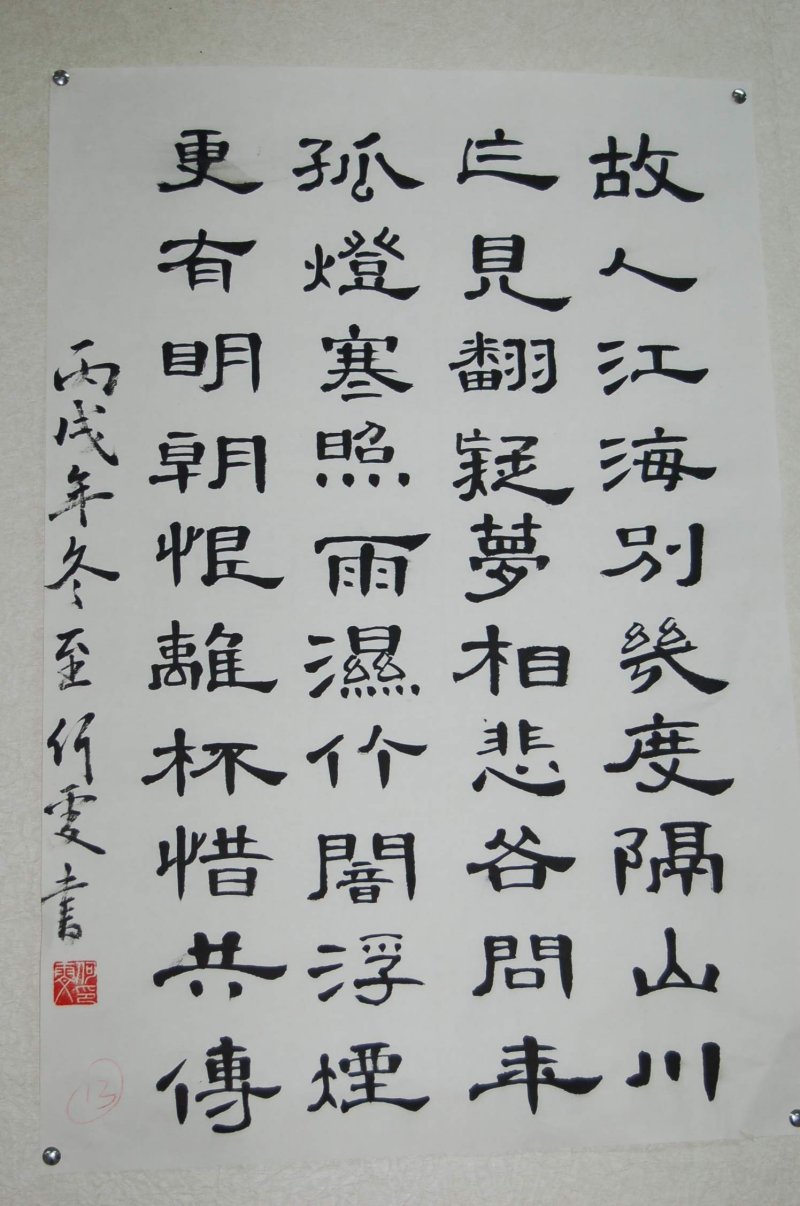 故人江海別幾度隔山川
乍見翻疑夢相悲各問年
孤燈寒照雨濕竹闇浮煙
更有明朝恨離杯惜共傳
丙戌年冬至何雯書
13